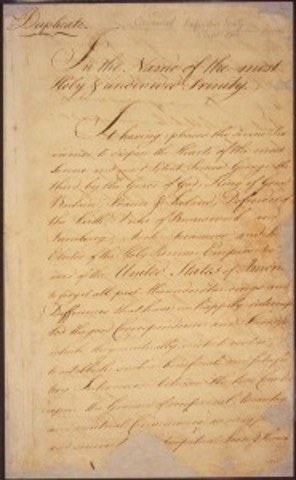 Duplicate.
In the Name of the most
Holy & undivided Trinity.
It having pleased the divine Pro
vidence to dispose the Hearts of the most
Serene and most Potent Prince George the
third, by the Grace of God, King of Great
Britain, France & Ireland, Defender of
the Faith, Duke of Brunswick and
Luneburg, Arch Treasurer and
Elector of the Holy Roman Empire
and of the United States of America
to forget all past Misunderstandings and
Differences that have unhappily interrup
ted the good Correspondence and Friendship
which they mutually wish to
to establish such a beneficial and satisfac
tory Intercourse between the two
upon the Ground of reciprocal Advantages
and mutual Convenience as may
and secure perpetual Peace &